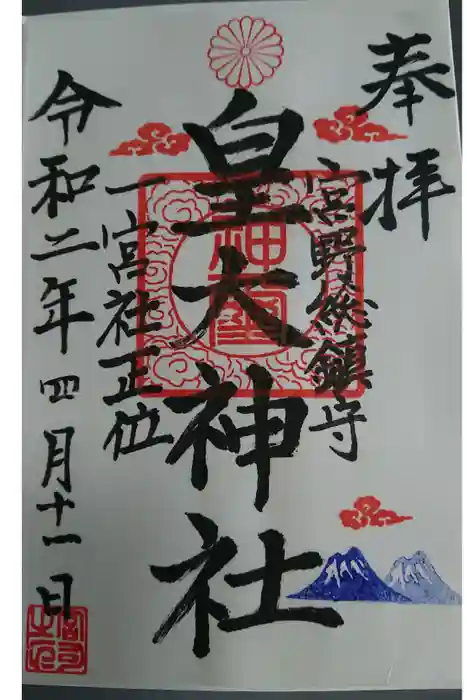 奉拝
宮野鎮守
皇大神社
一宮社正位
令和二年四月十一日
宮司之印